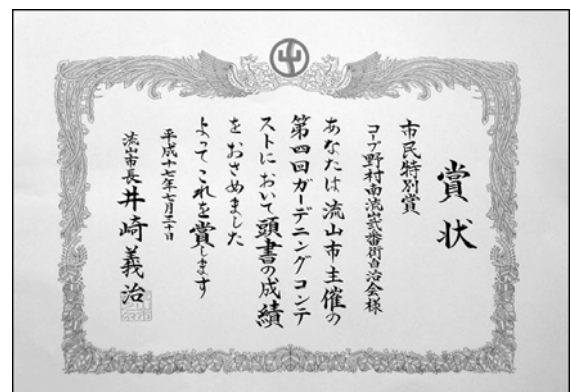 賞状
市民特別賞
コープ野村南流山弐番街自治会様
あなたは流山市主催の
第四回ガーデニングコンテ
ストにおいて頭書の成績
をおさめました
よってこれを賞します
平成十七年七月三十日
流山市長 井崎義治